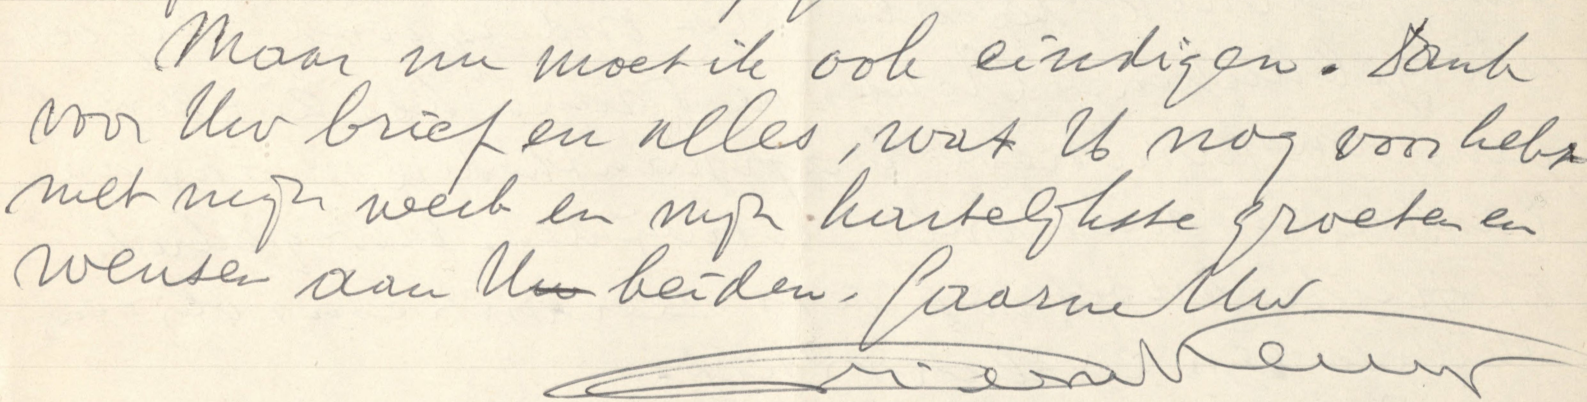 Maar nu moet ik ook eindigen. Dank
voor Uw brief en alles, wat U nog voor hebt
met mijn werk en mijn hartelijkste groeten en
wensen aan U beiden. Gaarne Uw